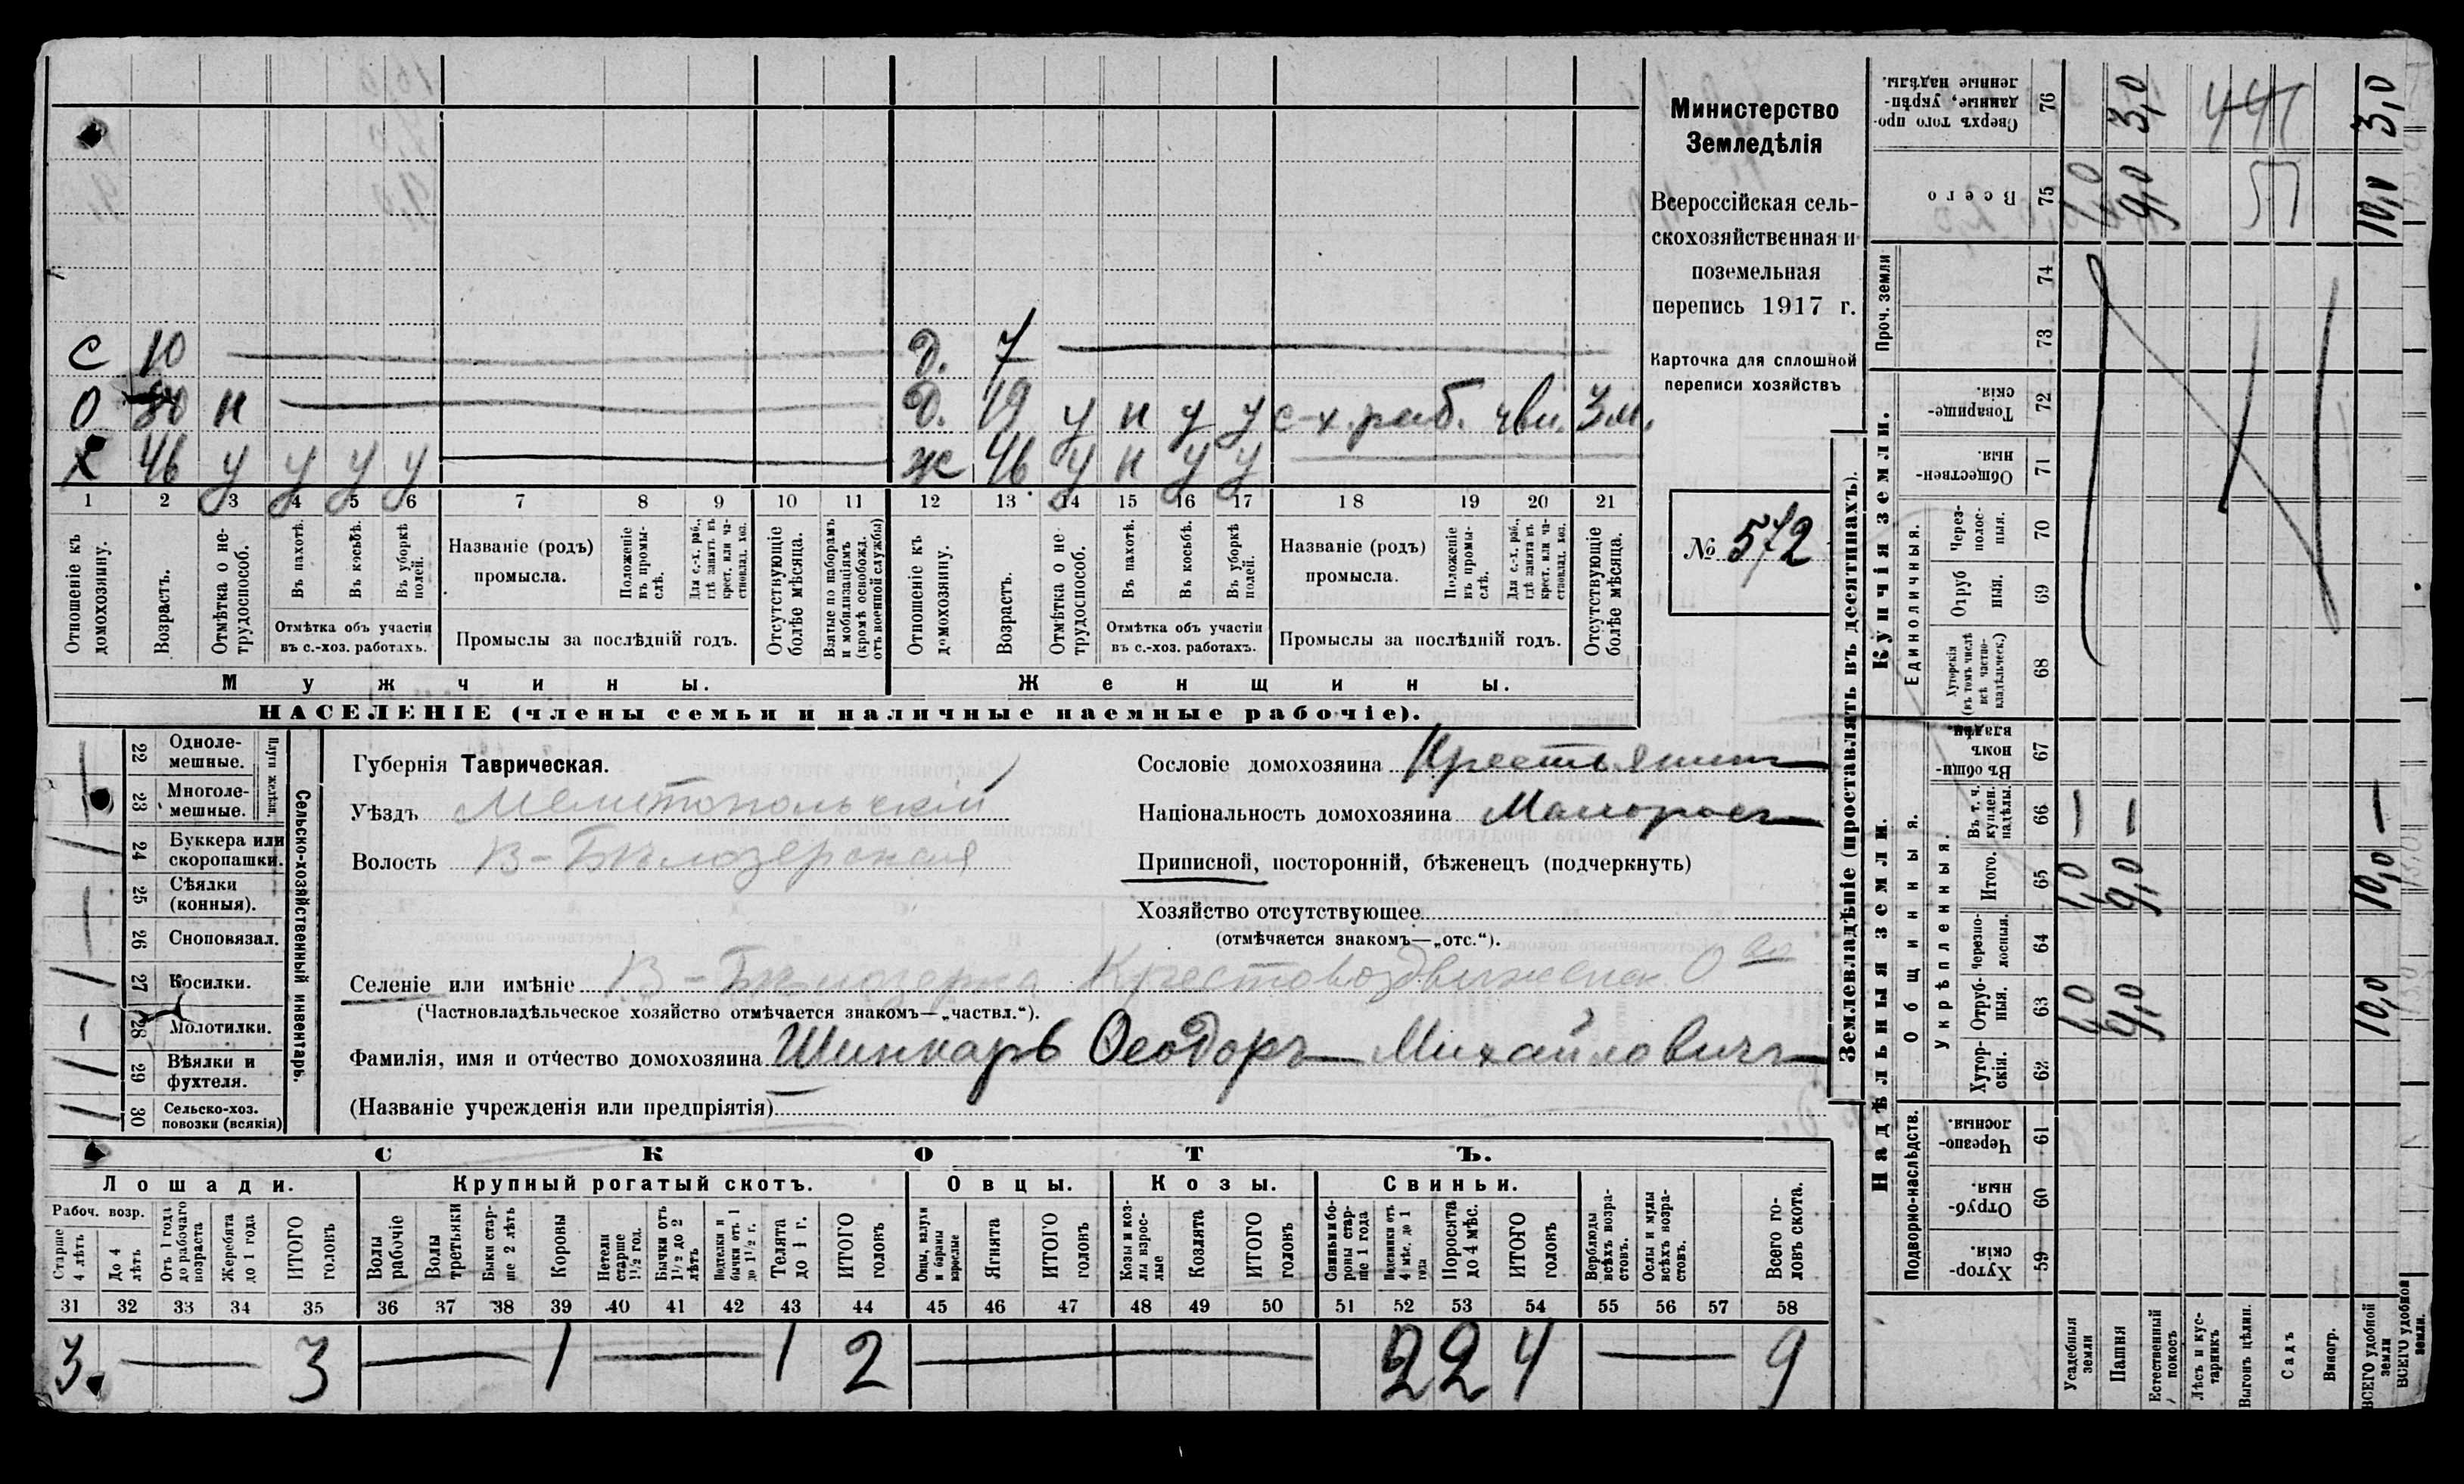 С 10 — Д. 7 —
О н — Д. 19 у н у у с-х. раб. чвл. 3 м.
Х 46 у у у у — Ж 46 у н у у —
1 2 3 4 5 6 7 8 9 10 11 12 13 14 15 16 17 18 19 20 21
Отношеніе къ домохозяину.
Возрастъ.
Отмѣтка о не-трудоспособ.
Въ пахотѣ.
Въ косьбѣ.
Въ уборкѣ полей.
Отмѣтка объ участіи
въ с.-хоз. работахъ.
Названіе (родъ)
промысла.
Положеніе въ промы-слѣ.
Для с.-х. раб., гдѣ занятъ въ крест. или ча-стновлад. хоз.
Промыслы за послѣдній годъ.
Отсутствующіе болѣе мѣсяца.
Взятые по наборамъ и мобилизаціямъ (кромѣ освобожд. отъ военной службы)
Отношеніе къ домохозяину.
Возрастъ.
Отмѣтка о не-трудоспособ.
Въ пахотѣ.
Въ косьбѣ.
Въ уборкѣ полей.
Отмѣтка объ участіи
въ с.-хоз. работахъ.
Названіе (родъ)
промысла.
Положеніе въ промы-слѣ.
Для с.-х. раб., гдѣ занята въ крест. или ча-стновлад. хоз.
Промыслы за послѣдній годъ.
Отсутствующіе болѣе мѣсяца.
Мужчины. Женщины.
НАСЕЛЕНІЕ (члены семьи и наличные наемные рабочіе).
Министерство
Земледѣлія
Всероссійская сель-
скохозяйственная и
поземельная
перепись 1917 г.
Карточка для сплошной
переписи хозяйствъ
№ 572
22 Одноле-
мешные.
23 Многоле-
мешные.
Плуги желѣзн.
24 Буккера или
скоропашки.
25 Сѣялки
(конныя).
26 Сноповязал.
27 Косилки.
28 Молотилки.
29 Вѣялки и
фухтеля.
30 Сельско-хоз.
повозки (всякія)
Сельско-хозяйственный инвентарь.
Губернія Таврическая.
Уѣздъ Мелитопольскій
Волость В-Бѣлозерская
Сословіе домохозяина Крестьянинъ
Національность домохозяина Малоросъ
Приписной, посторонній, бѣженецъ (подчеркнуть)
Хозяйство отсутствующее
(отмѣчается знакомъ—„отс.“).
Селеніе или имѣніе В-Бѣлозерка Крестовоздвиженск. О во
(Частновладѣльческое хозяйство отмѣчается знакомъ—„частвл.“).
Фамилія, имя и отчество домохозяина Шинкарь Ѳеодоръ Михайловичъ
(Названіе учрежденія или предпріятія)
СКОТЪ.
Лошади. Крупный рогатый скотъ. Овцы. Козы. Свиньи.
Рабоч. возр.
Старше 4 лѣтъ
До 4 лѣтъ
Отъ 1 года до рабочаго возраста
Жеребята до 1 года
ИТОГО головъ
Волы рабочіе
Волы третьяки
Быки стар-ше 2 лѣтъ
Коровы
Нетели старше 1½ год.
Бычки отъ 1½ до 2 лѣтъ
Подтелки и бычки отъ 1 до 1½ г.
Телята до 1 г.
ИТОГО головъ
Овцы, валухи и бараны взрослые
Ягнята
ИТОГО головъ
Козы и коз-лы взрос-лые
Козлята
ИТОГО головъ
Свиньи и бо-ровы стар-ше 1 года
Подсвинки отъ 4 мѣс. до 1 года
Поросята до 4 мѣс.
ИТОГО головъ
Верблюды всѣхъ возра-стовъ.
Ослы и мулы всѣхъ возра-стовъ.
Всего го-ловъ скота.
31 32 33 34 35 36 37 38 39 40 41 42 43 44 45 46 47 48 49 50 51 52 53 54 55 56 57 58
3 — 3 — 1 — 1 2 — 2 2 4 — 9
Землевладѣніе (проставлять въ десятинахъ).
Купчія земли.
Надѣльныя земли.
Сверхъ того про-данные, укрѣп-ленные надѣлы. 76 3,0 3,0
Всего 75 1,0 9,0 57 10,0
Проч. земли
74
73
Товарище-скія. 72
Обществен-ныя. 71
Единоличныя.
Через-полос-ныя. 70
Отруб ныя. 69
Хуторскія (въ томъ числѣ всѣ частно-владѣльческ.) 68
Общинныя.
Въ общи-номъ владѣн. 67
Укрѣпленныя.
Въ т. ч. куплен. надѣлы. 66 — — —
Итого. 65 1,0 9,0 10,0
Черезпо-лосныя. 64
Отруб-ныя. 63 1,0 9,0 10,0
Хутор-скія. 62
Подворно-наслѣдств.
Черезпо-лосныя. 61
Отруб-ныя. 60
Хутор-скія. 59
Усадебныя земли
Пашня
Естественный покосъ
Лѣсъ и кус-тарникъ
Выгонъ цѣлин.
Садъ
Виногр.
ВСЕГО удобной земли
ВСЕГО удобной земли.